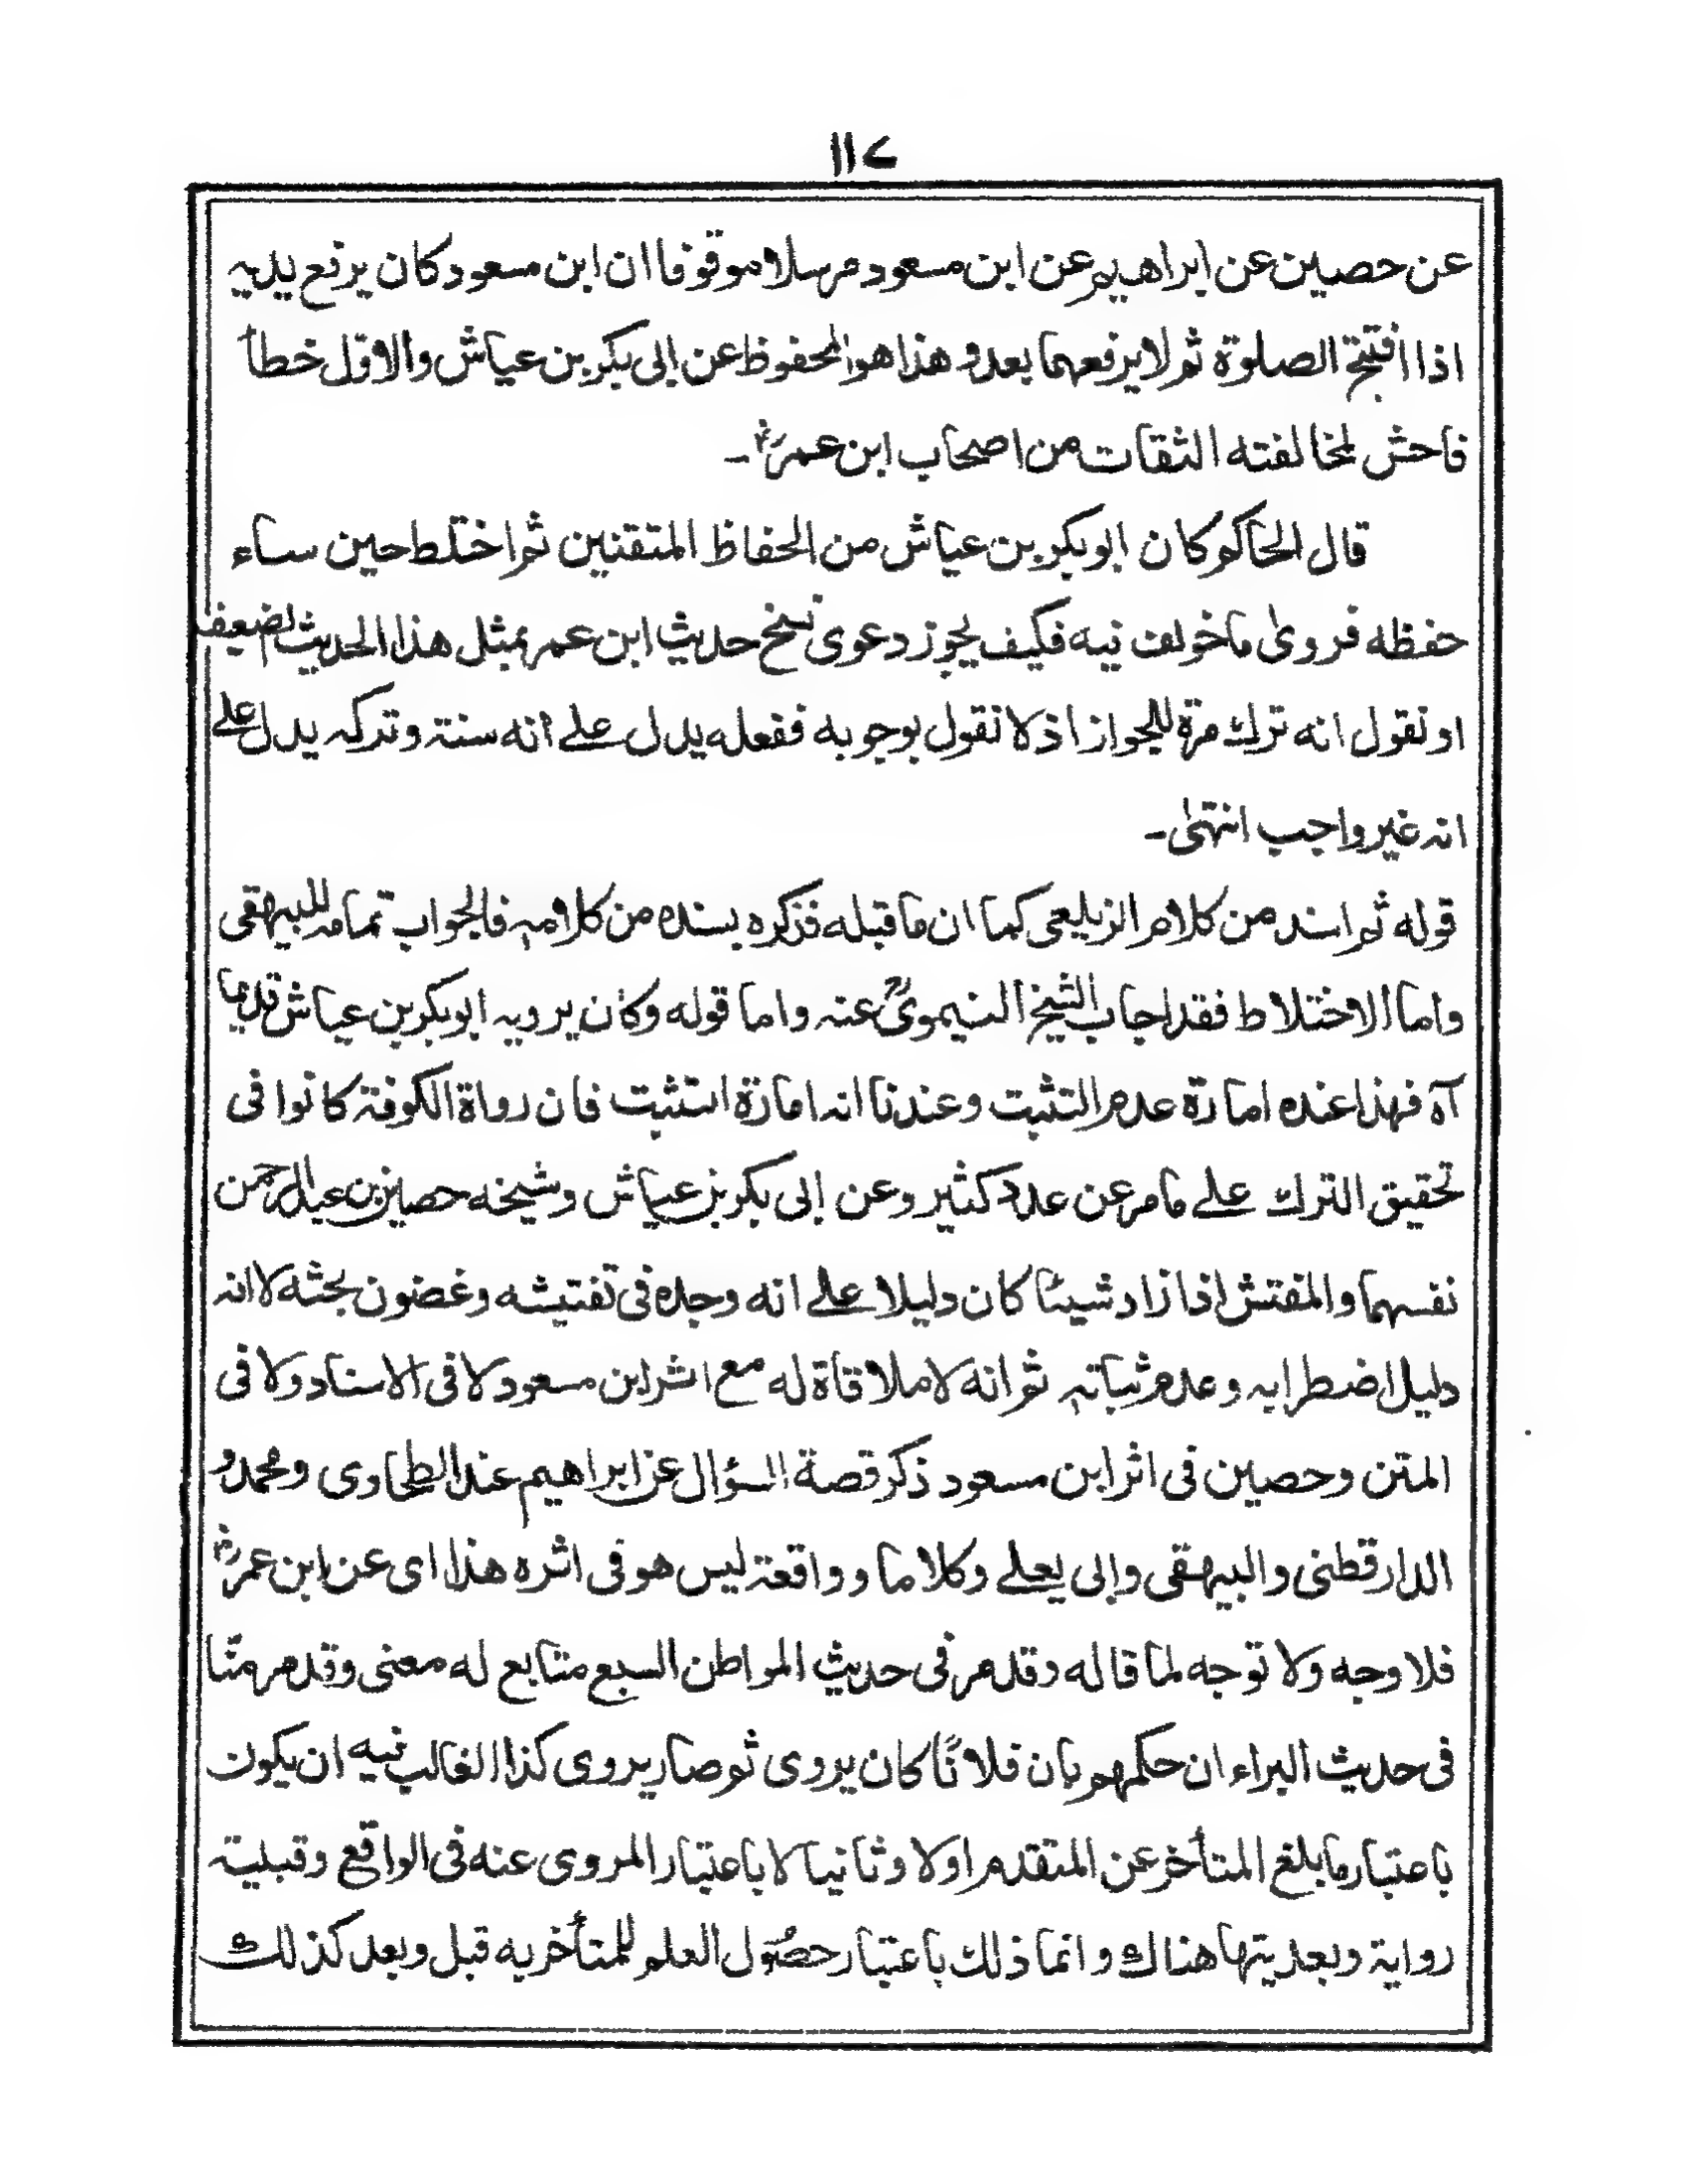 ۱۱۷
عن حصين عن ابراهيم عن ابن مسعود مرسلا موقوفا ان ابن مسعود كان يرفع يديه
اذا افتتح الصلوة ثم لا يرفعهما بعد و هذا هوالمحفوظ عن ابي بكر بن عياش والاوّل خطأ
فاحش لمخالفته الثقات من اصحاب ابن عمرؓ۔
قال الحاكم كان ابوبكر بن عياش من الحفاظ المتقنين ثم اختلط حين ساء
حفظه فروىٰ ما خولف فيه فكيف يجوز دعوى نسخ حديث ابن عمر بمثل هذا الحديث الضعيف
او نقول انه ترك مرة للجواز اذ لا نقول بوجوبه ففعله يدل علے أنه سنة وتركه يدل علے
انه غير واجب انتهىٰ۔
قوله ثم اسند من كلام الزيلعي كما ان ما قبله فذكره بسنده من كلامه فالجواب تمامه للبيهقي
واما الاختلاط فقد اجاب الشيخ النيمويؒ عنه واما قوله وكان يرويه ابوبكر بن عياش قديما
آه فهذا عنده امارة عدم التثبت وعندنا انه امارة التثبت فان رواة الكوفة كانوا في
تحقيق الترك علے ما مر عن عدد كثير وعن ابي بكر بن عياش وشيخه حصين بن عبد الرحمن
نفسهما والمفتش اذا زاد شيئا كان دليلا علے انه وجده في تفتيشه وغضون بحثه لا انه
دليل اضطرابه وعدم ثباته ثم انه لا ملاقاة له مع اثر ابن مسعود لا في الاسناد ولا في
المتن وحصين في اثر ابن مسعود ذكر قصة السؤال عن ابراهيم عند الطحاوي ومحمد و
الدارقطني والبيهقي وابي يعلے وكلاما وواقعة ليس هو في اثره هذا اي عن ابن عمرؓ
فلا وجه ولا توجه لما قاله وقد مر في حديث المواطن السبع متابع له معنى وقد مر منّا
في حديث البراء ان حكمهم بان فلانًا كان يروي ثم صار يروي كذا الغالب فيه ان يكون
باعتبار ما بلغ المتأخر عن المتقدم اولا وثانيا لا باعتبار المروي عنه في الواقع وقبلية
رواية وبعديتها هناك وانما ذلك باعتبار حصُول العلم للمتأخر به قبل وبعد كذلك